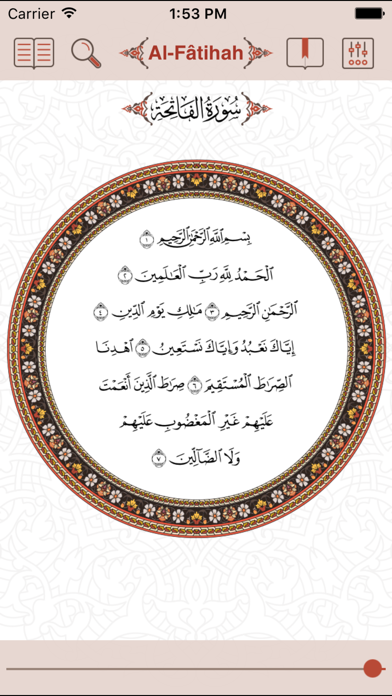 Carrier 1:53 PM
Al-Fâtihah
سُورَةُ الْفَاتِحَةِ
بِسْمِ اللَّهِ الرَّحْمَٰنِ الرَّحِيمِ ١
الْحَمْدُ لِلَّهِ رَبِّ الْعَالَمِينَ ٢
الرَّحْمَٰنِ الرَّحِيمِ ٣ مَالِكِ يَوْمِ الدِّينِ ٤
إِيَّاكَ نَعْبُدُ وَإِيَّاكَ نَسْتَعِينُ ٥ اهْدِنَا
الصِّرَاطَ الْمُسْتَقِيمَ ٦ صِرَاطَ الَّذِينَ أَنْعَمْتَ
عَلَيْهِمْ غَيْرِ الْمَغْضُوبِ عَلَيْهِمْ
وَلَا الضَّالِّينَ ٧